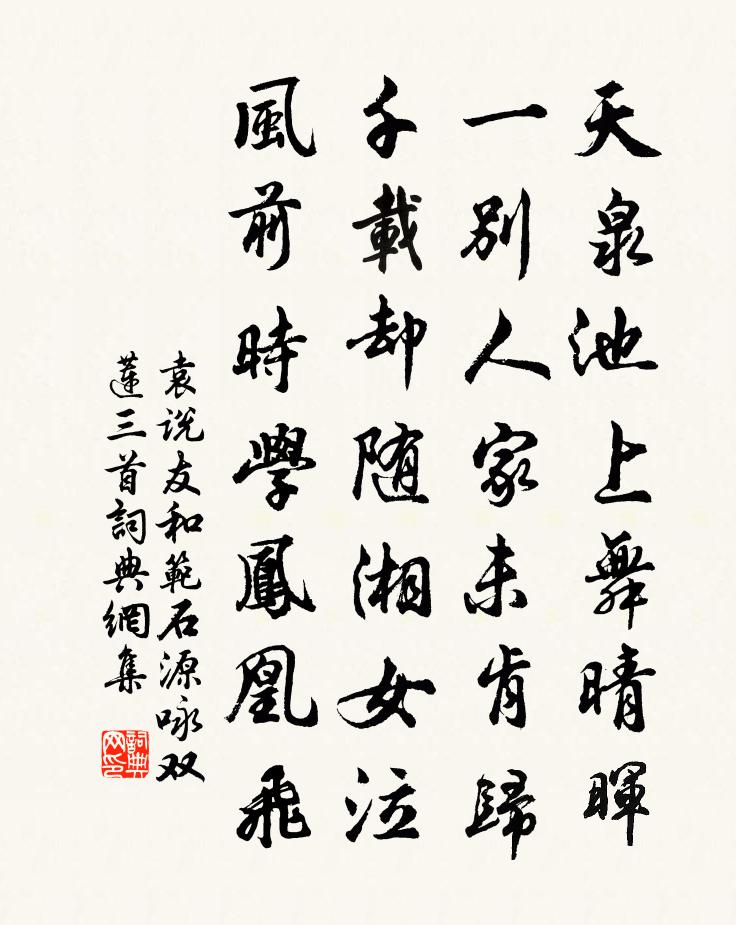 天泉池上舞晴暉
一別人家未肯歸
千載却随湘女泣
風前時學鳳凰飛
袁说友和範石源咏双
蓮三首詞典網集
詞典网印